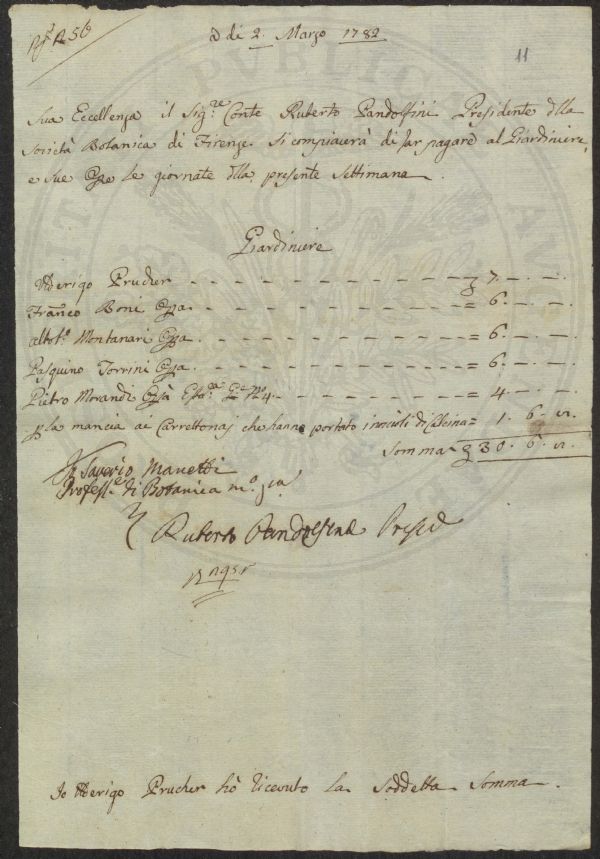 a dì 2. Marzo 1782
11
Sua Eccellenza il Sig.re Conte Ruberto Pandolfini Presidente dlla
Società Botanica di Firenze. Si compiacerà di far pagare al Giardiniere,
e sue Opre le giornate dlla presente Settimana.
Giardiniere
Uderigo Prucher = 7. — —
Franco Boni Opra = 6. — —
Montanari Opra = 6. — —
Pasquino Torrini Opra = 6. — —
Pietro Morandi 4. = 4. — —
p la mancia ai Carrettonaj che hanno portato i di Cascina = 1. 6. 
Somma 30. 6. 
Saverio Manetti
Profess.e di Botanica m.o p.a
Ruberto Pandolfini Presid
Io Uderigo Prucher hò riceuto la Soddetta Somma.
PVBLICA